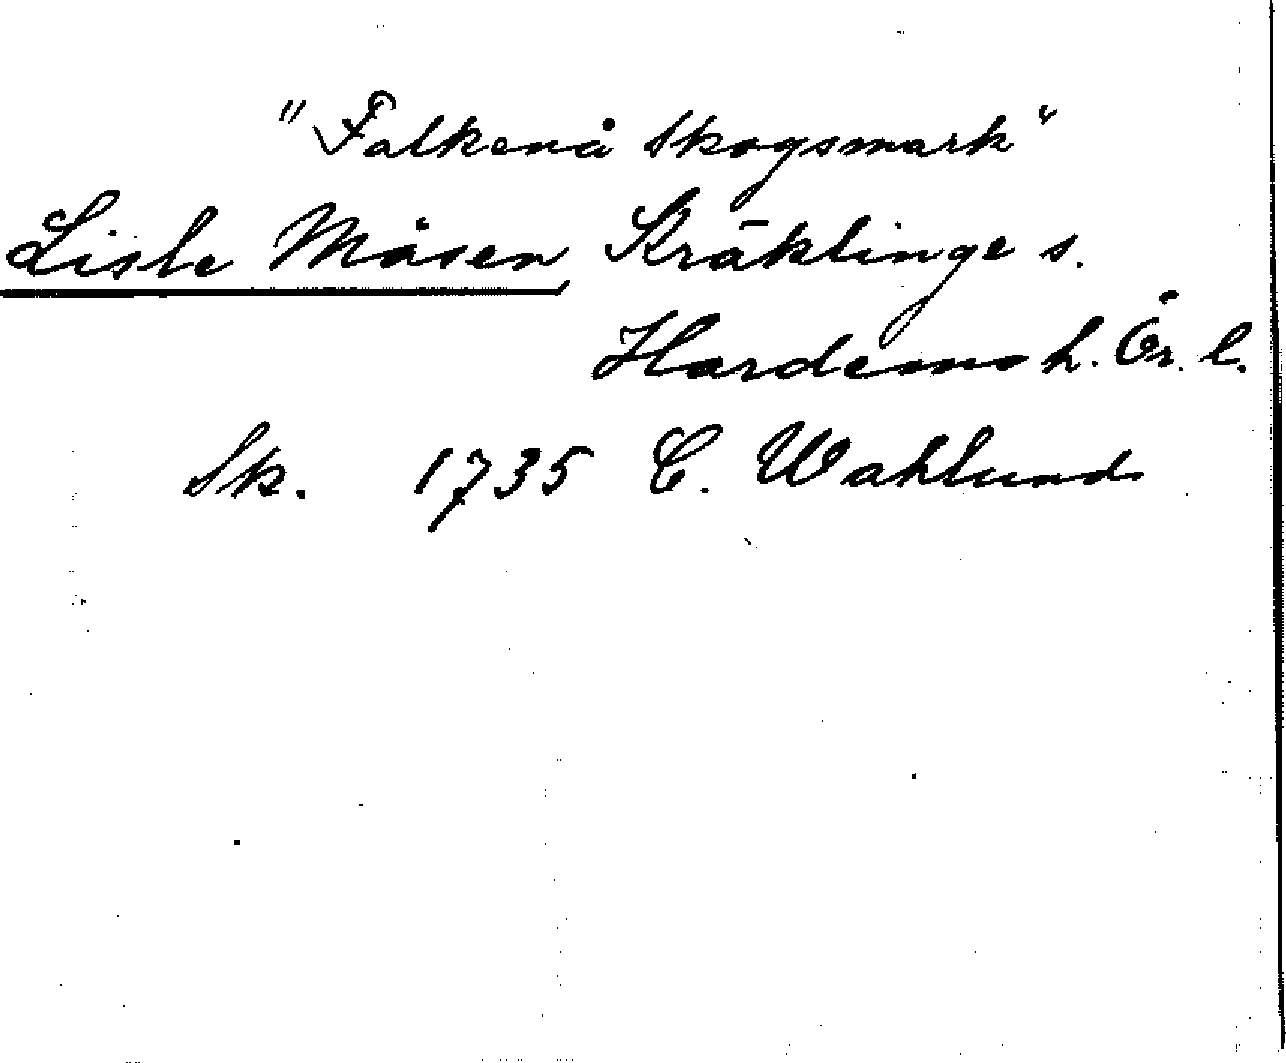 "Falkenå skogsmark"
Lisle Måsen Kräklinge s.
Hardemo h. Ör. l.
Sk. 1735 C. Wahlund